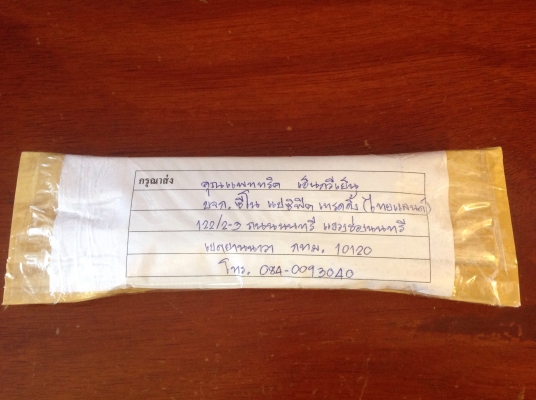 กรุณาส่ง คุณแพททริค เฮ็นควีเย็น
บจก. ซีโน แปซิฟิค เทรดดิ้ง (ไทยแลนด์)
122/2-3 ถนนนนทรี แขวงช่องนนทรี
เขตยานนาวา กทม. 10120
โทร. 084-0093040